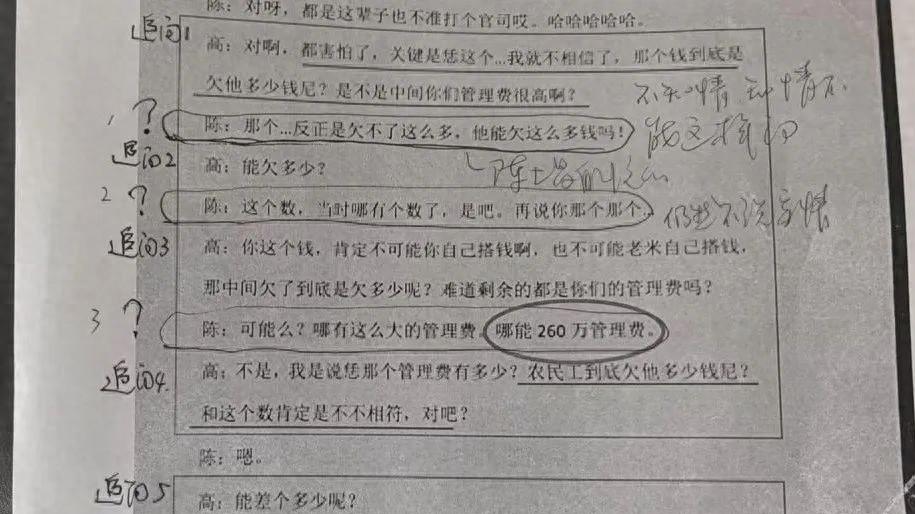 陈：对呀，都是这辈子也不准打个官司哎。哈哈哈哈哈。
追问1
高：对啊，都害怕了，关键是凭这个...我就不相信了，那个钱到底是
欠他多少钱尼？是不是中间你们管理费很高啊？
不知情
1 ?
陈：那个...反正是欠不了这么多，他能欠这么多钱吗！
追问2
高：能欠多少？
2 ?
陈：这个数，当时哪有个数了，是吧。再说你那个那个...
追问3
高：你这个钱，肯定不可能你自己搭钱啊，也不可能老米自己搭钱，
那中间欠了到底是欠多少呢？难道剩余的都是你们的管理费吗？
3 ?
陈：可能么？哪有这么大的管理费。哪能 260 万管理费。
追问4
高：不是，我是说凭那个管理费有多少？农民工到底欠他多少钱尼？
和这个数肯定是不不相符，对吧？
陈：嗯。
追问5
高：能差个多少呢？